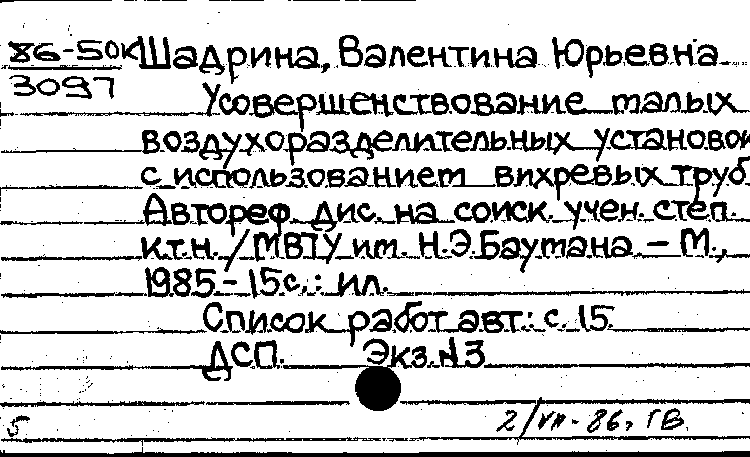 86-50к Шадрина, Валентина Юрьевна
3097
Усовершенствование малых
воздухоразделительных установок
с использованием вихревых труб.
Автореф. дис. на соиск. учен. степ.
к.т.н. / МВТУ им. Н.Э.Баумана. – М.,
1985. – 15с. : ил.
Список работ авт.: с. 15.
ДСП. Экз. №3
5 2/VII-86г. ГВ.